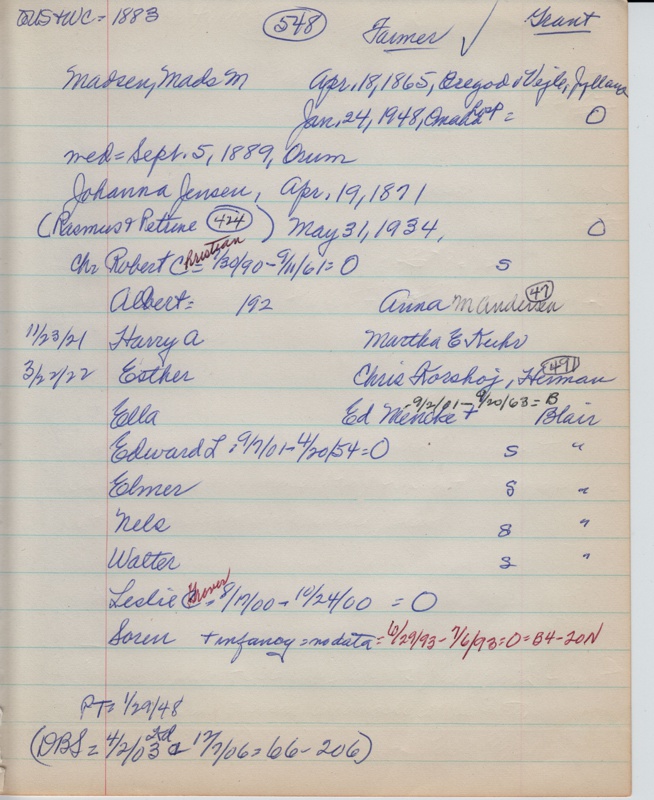 = 1883 548 Farmer ✓ Grant
Madsen, Mads M Apr. 18, 1865, Vejle,
Jan. 24, 1948, Omaha = O
med = Sept. 5, 1889, Orum
Johanna Jensen, Apr. 19, 1871
(Rasmus & Petrine 424) May 31, 1934, O
Chr Robert C Christian = 7/30/90 - 9/11/61 = O S
Albert = 192 Anna M Andersen 47
11/23/21 Harry A Martha E Kuhr
3/22/22 Esther Chris Korshoj, Herman 491
9/2/01 - 9/20/63 = B
Ella Ed Mencke + Blair
Edward L : 9/7/01 - 4/20/54 = O S "
Elmer S "
Nels S "
Walter S "
Leslie Grover = 8/17/00 - 10/24/00 = O
Soren + infancy = no data = 6/29/93 - 7/6/93 = O = B4 - 20N
PT = 1/29/48
(DBS = 4/2/03 & 12/7/06 = 66 - 206)